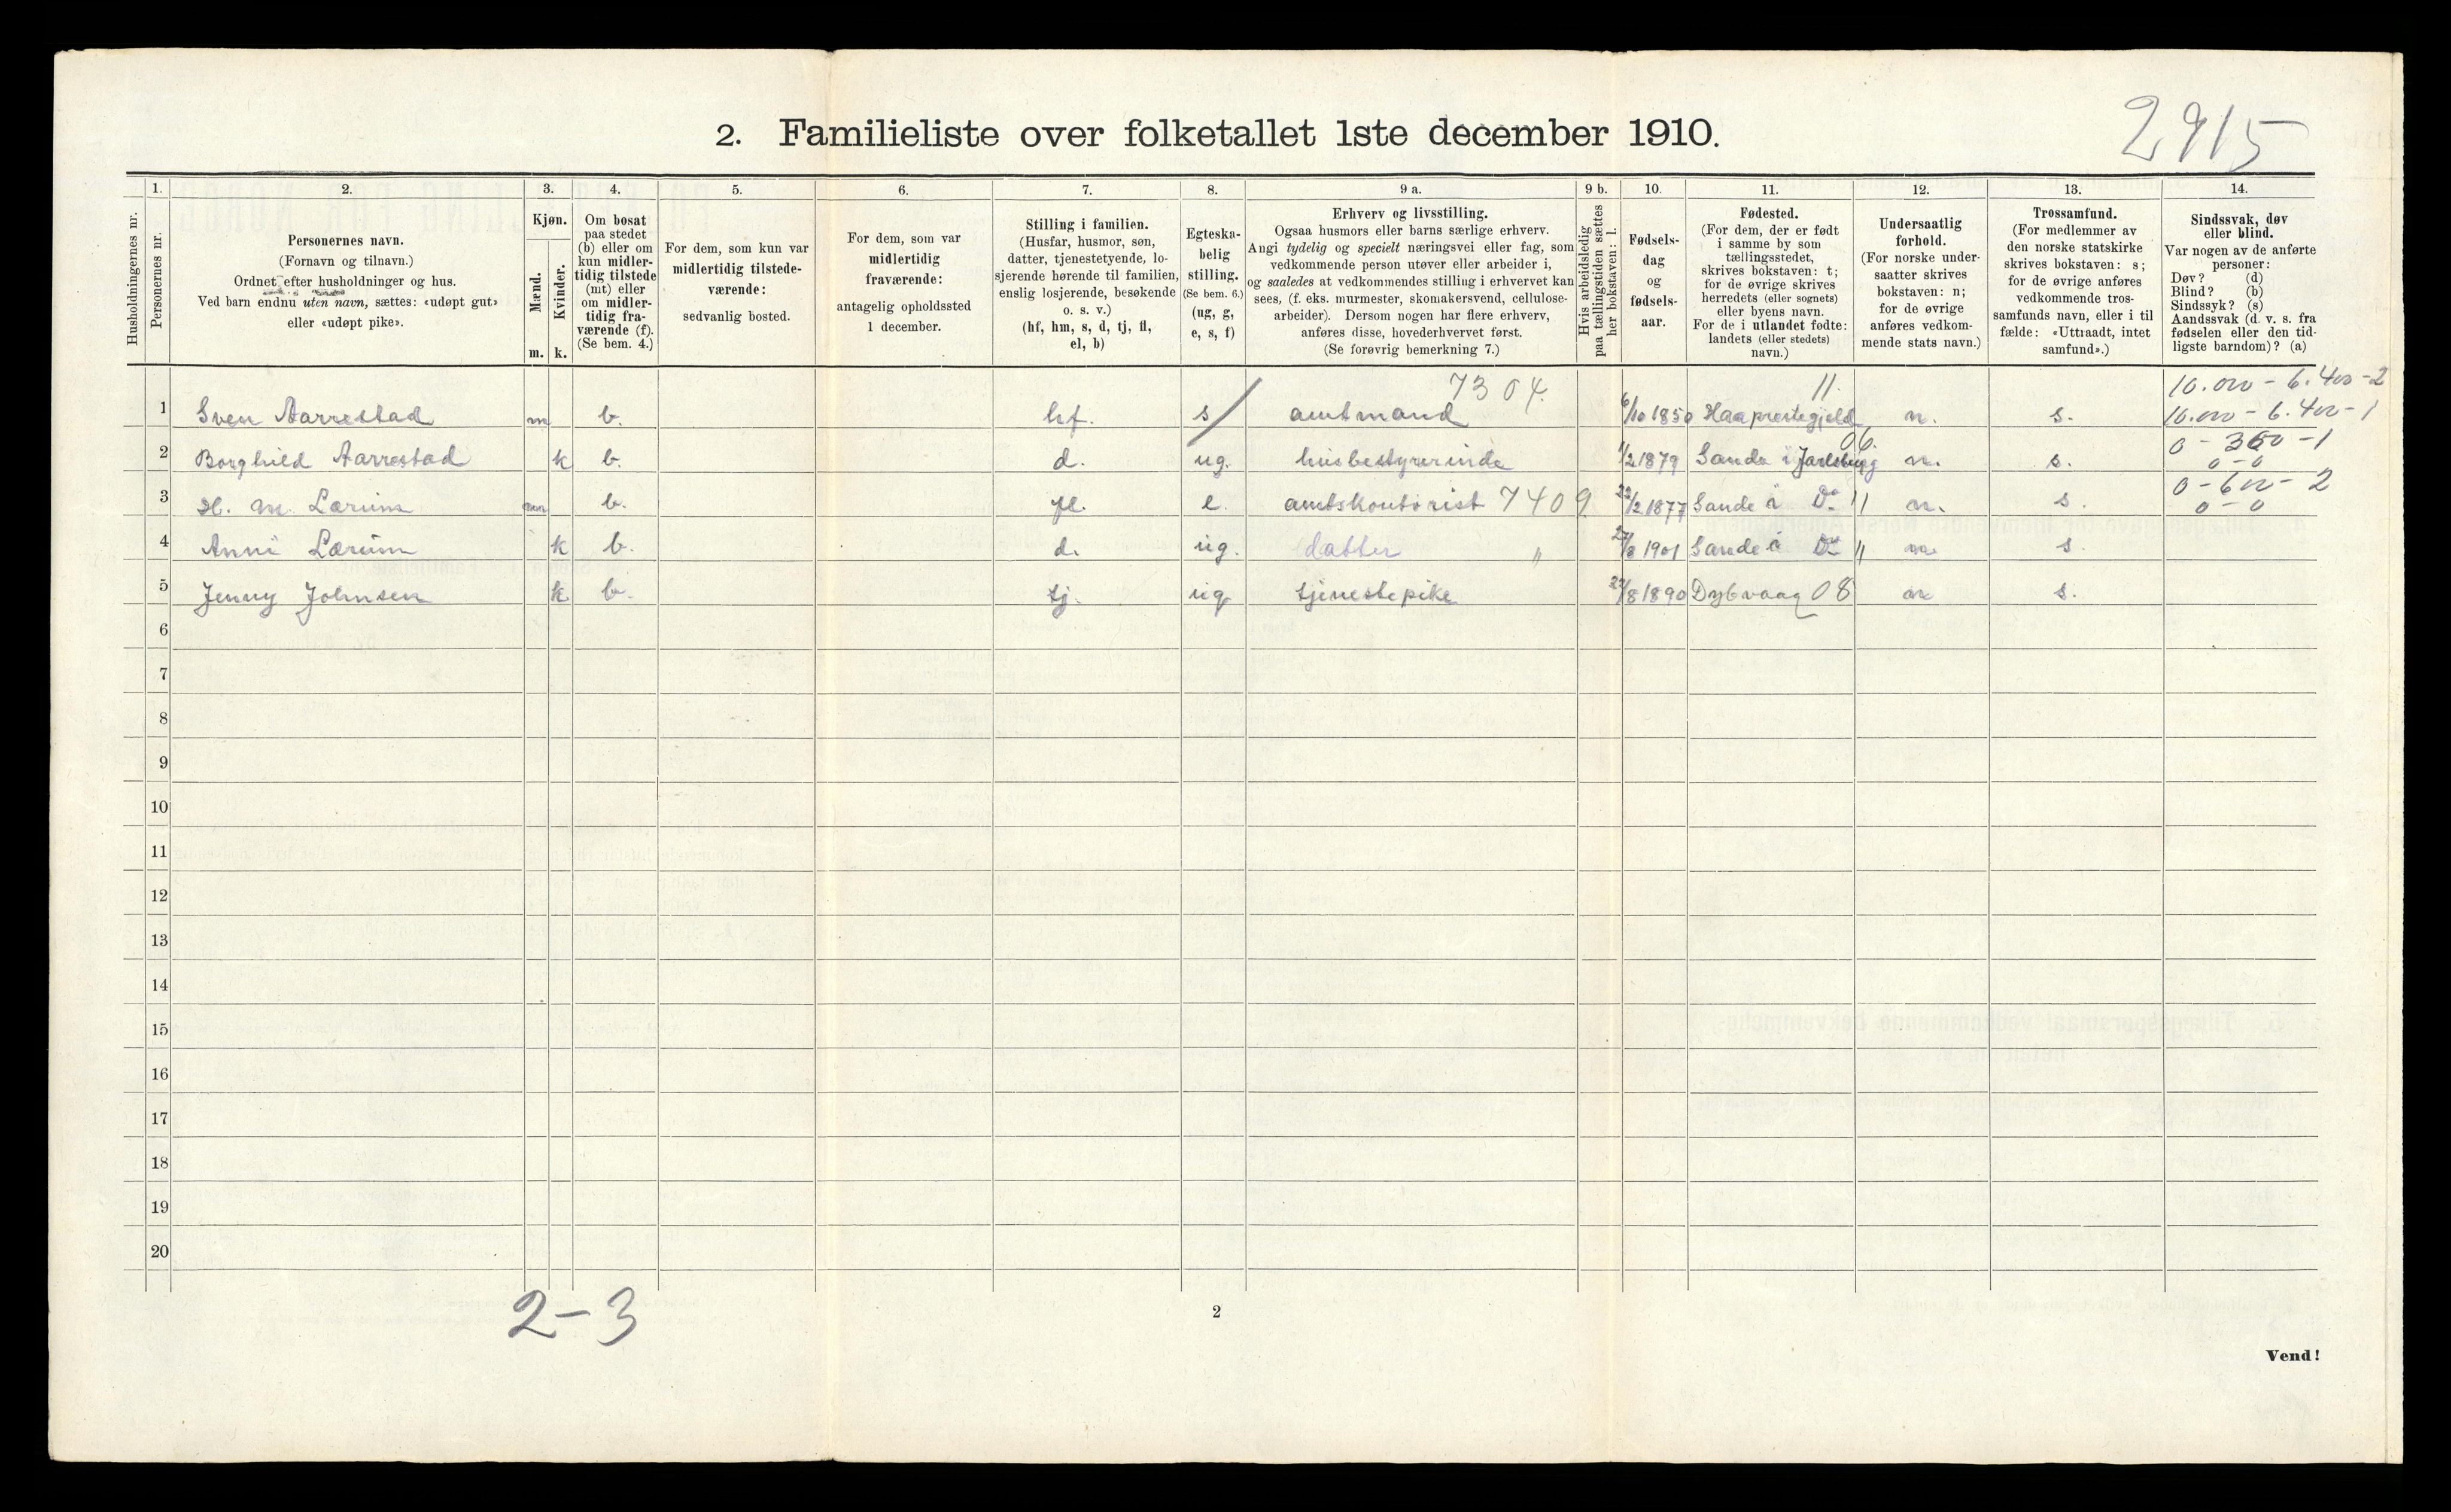 2915
2. Familieliste over folketallet 1ste december 1910.
Husholdningernes nr.
1.
Personernes nr.
2.
Personernes navn.
(Fornavn og tilnavn.)
Ordnet efter husholdninger og hus.
Ved barn endnu uten navn, sættes: «udøpt gut»
eller «udøpt pike».
3.
Kjøn.
Mænd.
Kvinder.
m. k.
4.
Om bosat
paa stedet
(b) eller om
kun midler-
tidig tilstede
(mt) eller
om midler-
tidig fra-
værende (f).
(Se bem. 4.)
5.
For dem, som kun var
midlertidig tilstede-
værende:
sedvanlig bosted.
6.
For dem, som var
midlertidig
fraværende:
antagelig opholdssted
1 december.
7.
Stilling i familien.
(Husfar, husmor, søn,
datter, tjenestetyende, lo-
sjerende hørende til familien,
enslig losjerende, besøkende
o. s. v.)
(hf, hm, s, d, tj, fl,
el, b)
8.
Egteska-
belig
stilling.
(Se bem. 6.)
(ug, g,
e, s, f)
9 a.
Erhverv og livsstilling.
Ogsaa husmors eller barns særlige erhverv.
Angi tydelig og specielt næringsvei eller fag, som
vedkommende person utøver eller arbeider i,
og saaledes at vedkommendes stilling i erhvervet kan
sees, (f. eks. murmester, skomakersvend, cellulose-
arbeider). Dersom nogen har flere erhverv,
anføres disse, hovederhvervet først.
(Se forøvrig bemerkning 7.)
9 b.
Hvis arbeidsledig
paa tællingstiden sættes
her bokstaven: l.
10.
Fødsels-
dag
og
fødsels-
aar.
11.
Fødested.
(For dem, der er født
i samme by som
tællingsstedet,
skrives bokstaven: t;
for de øvrige skrives
herredets (eller sognets)
eller byens navn.
For de i utlandet fødte:
landets (eller stedets)
navn.)
12.
Undersaatlig
forhold.
(For norske under-
saatter skrives
bokstaven: n;
for de øvrige
anføres vedkom-
mende stats navn.)
13.
Trossamfund.
(For medlemmer av
den norske statskirke
skrives bokstaven: s;
for de øvrige anføres
vedkommende tros-
samfunds navn, eller i til
fælde: «Uttraadt, intet
samfund».)
14.
Sindssvak, døv
eller blind.
Var nogen av de anførte
personer:
Døv? (d)
Blind? (b)
Sindssyk? (s)
Aandssvak (d. v. s. fra
fødselen eller den tid-
ligste barndom)? (a)
7304. 11. 10.000 - 6.400 - 2
1 Sven Aarrestad m b. hf. s amtmand 6/10 1850 Haa prestegjeld n. s. 10.000 - 6.400 - 1
06. 0 - 360 - 1
2 Borghild Aarrestad k b. d. ug. husbestyrerinde 1/2 1879 Sande i Jarlsberg n. s. 0 - 0
0 - 600 - 2
3 H. M. Lærum m b. fl. e. amtskontorist 7409 22/2 1877 Sande i Do " n. s. 0 - 0
4 Anni Lærum k b. d. ug. datter " 27/8 1901 Sande i Do " n s.
5 Jenny Johnsen k b. tj. ug tjenestepike 22/8 1890 Dybvaag 08 n s.
6
7
8
9
10
11
12
13
14
15
16
17
18
19
20
2-3
2
Vend!